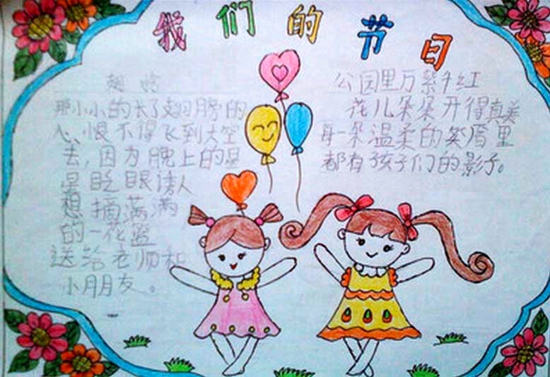 我们的节日
翅
那小小的长了翅膀的
心,恨不得飞到天空
去,因为晚上的星
星眨眼诱人
想摘满满
的一花篮
送给老师和
小朋友。
公园里万紫千红
花儿朵朵开得真美
每一朵温柔的笑眉里
都有孩子们的影子。